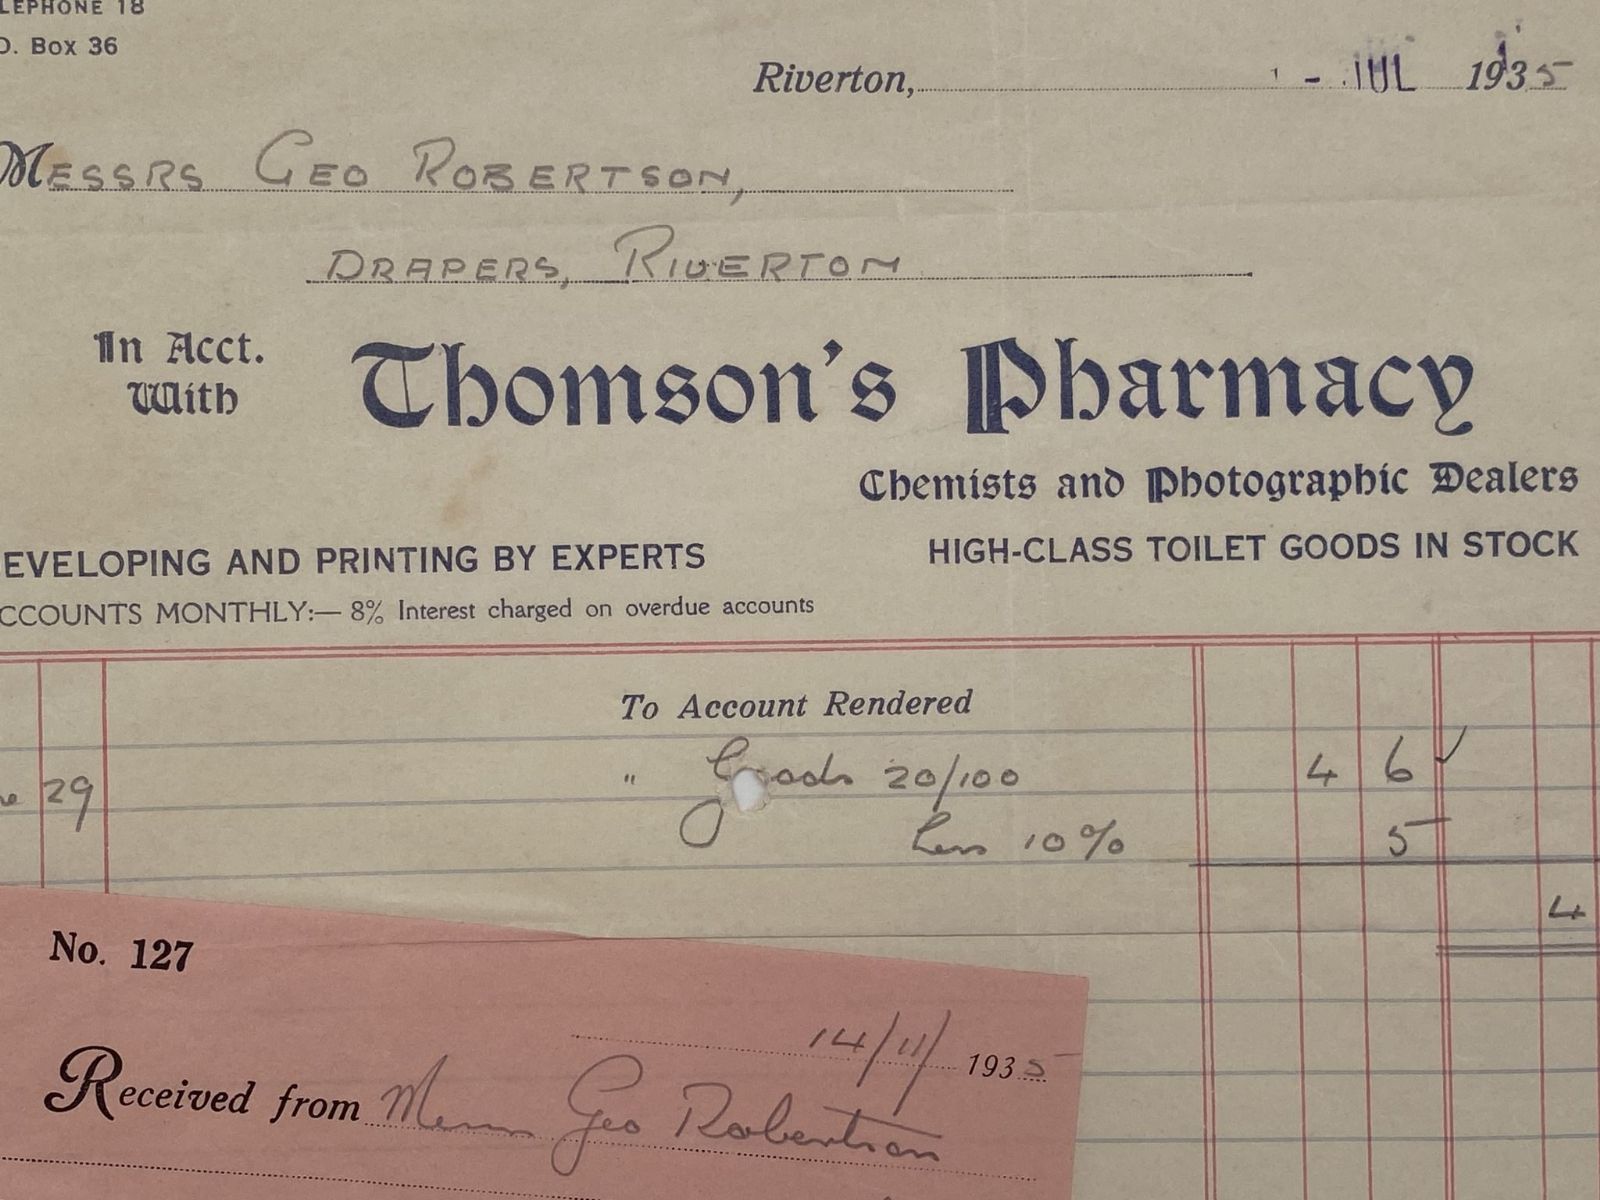 LEPHONE 18
O. Box 36
Riverton, 1 - JUL 1935
Messrs Geo Robertson,
Drapers, Riverton
In Acct.
With
Thomson's Pharmacy
Chemists and Photographic Dealers
EVELOPING AND PRINTING BY EXPERTS
HIGH-CLASS TOILET GOODS IN STOCK
CCOUNTS MONTHLY:— 8% Interest charged on overdue accounts
To Account Rendered
29 " Goods 20/100 4 6
Less 10% 5
4
No. 127
14/11/ 1935
Received from Messrs Geo Robertson